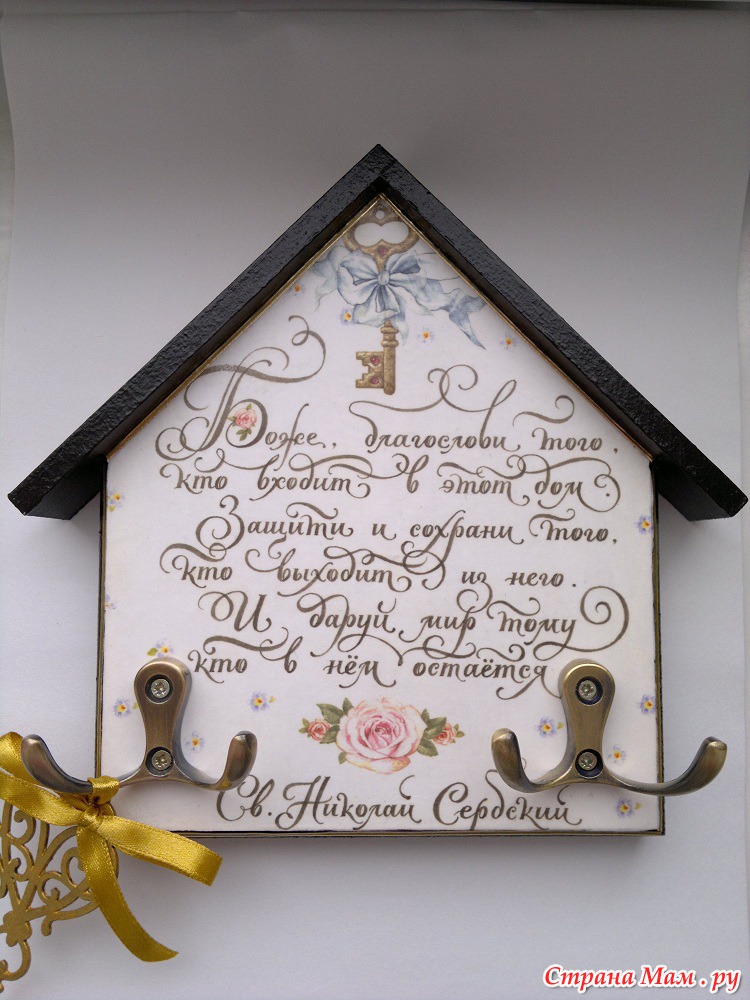 Боже, благослови того,
кто входит в этот дом.
Защити и сохрани того,
кто выходит из него.
И даруй мир тому
кто в нём остаётся
Св. Николай Сербский
Страна Мам.ру